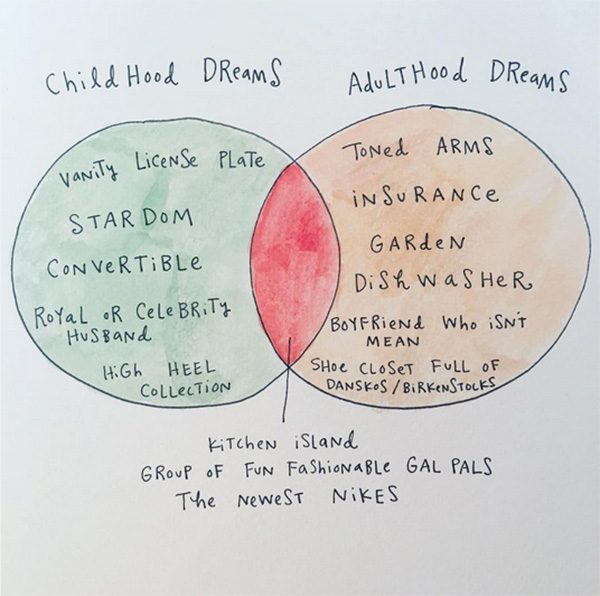 Childhood Dreams
Adulthood Dreams
Vanity License Plate
Stardom
Convertible
Royal or Celebrity
Husband
High Heel
Collection
Toned Arms
Insurance
Garden
Dishwasher
Boyfriend who isn't
mean
Shoe closet full of
Danskos/Birkenstocks
Kitchen island
Group of fun fashionable gal pals
The newest Nikes